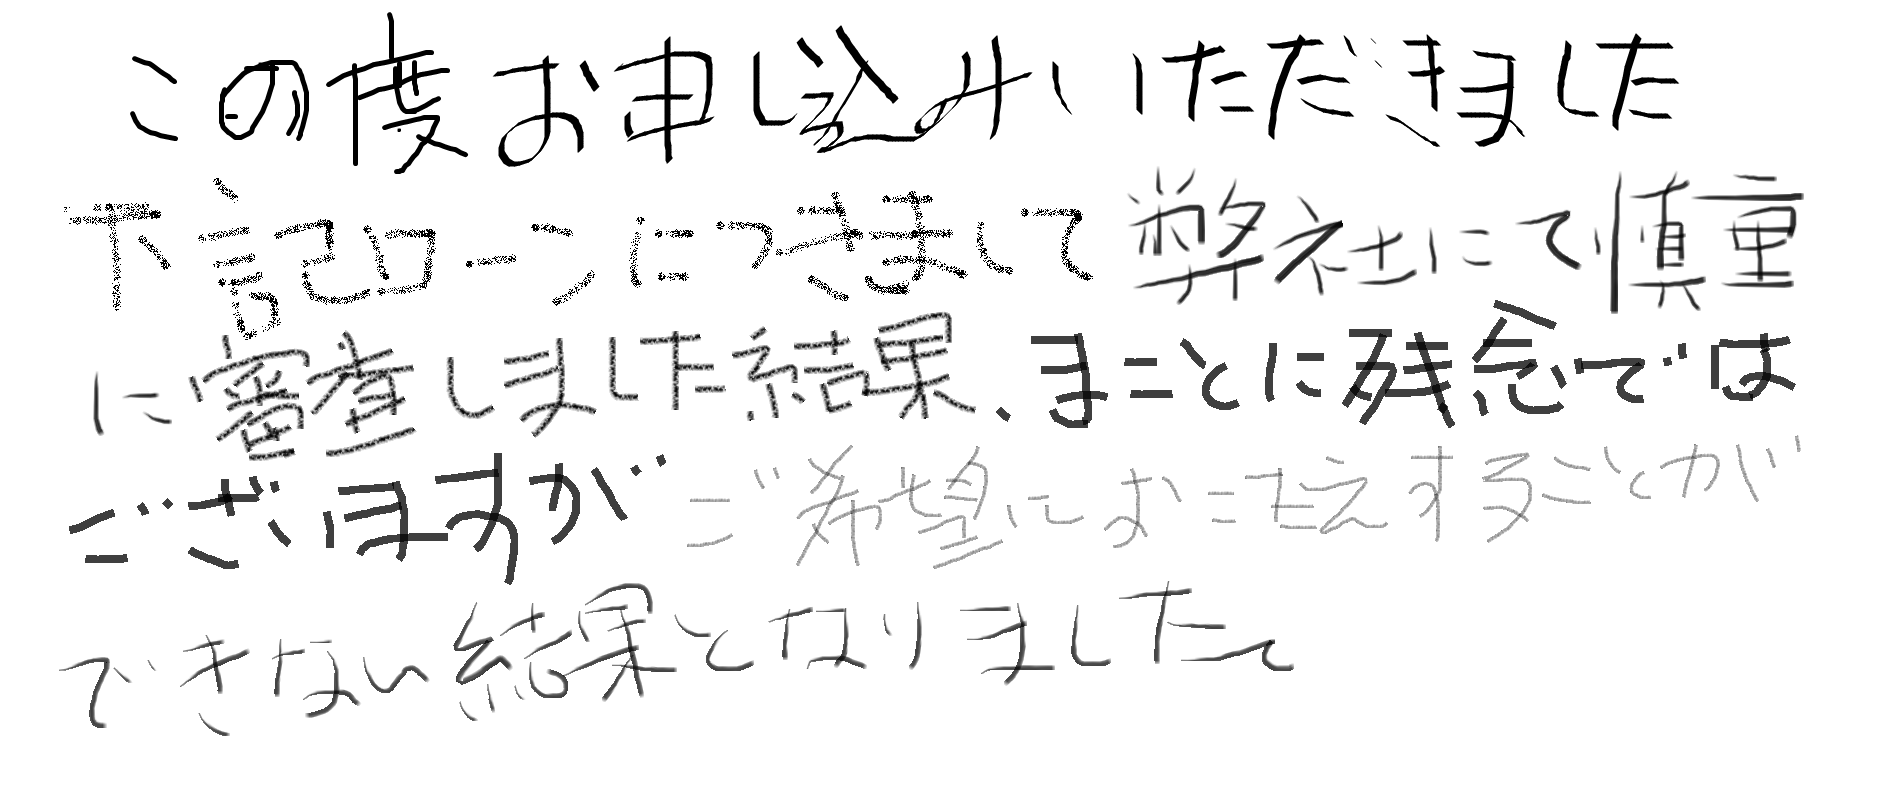 この度お申し込みいただきました
下記ローンにつきまして弊社にて慎重
に審査しました結果、まことに残念では
ございますがご希望におこたえすることが
できない結果となりました